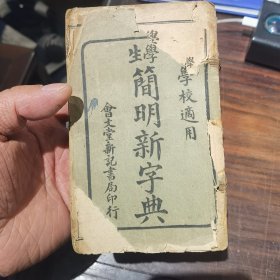 學校適用
學生
簡明新字典
會文堂新記書局印行